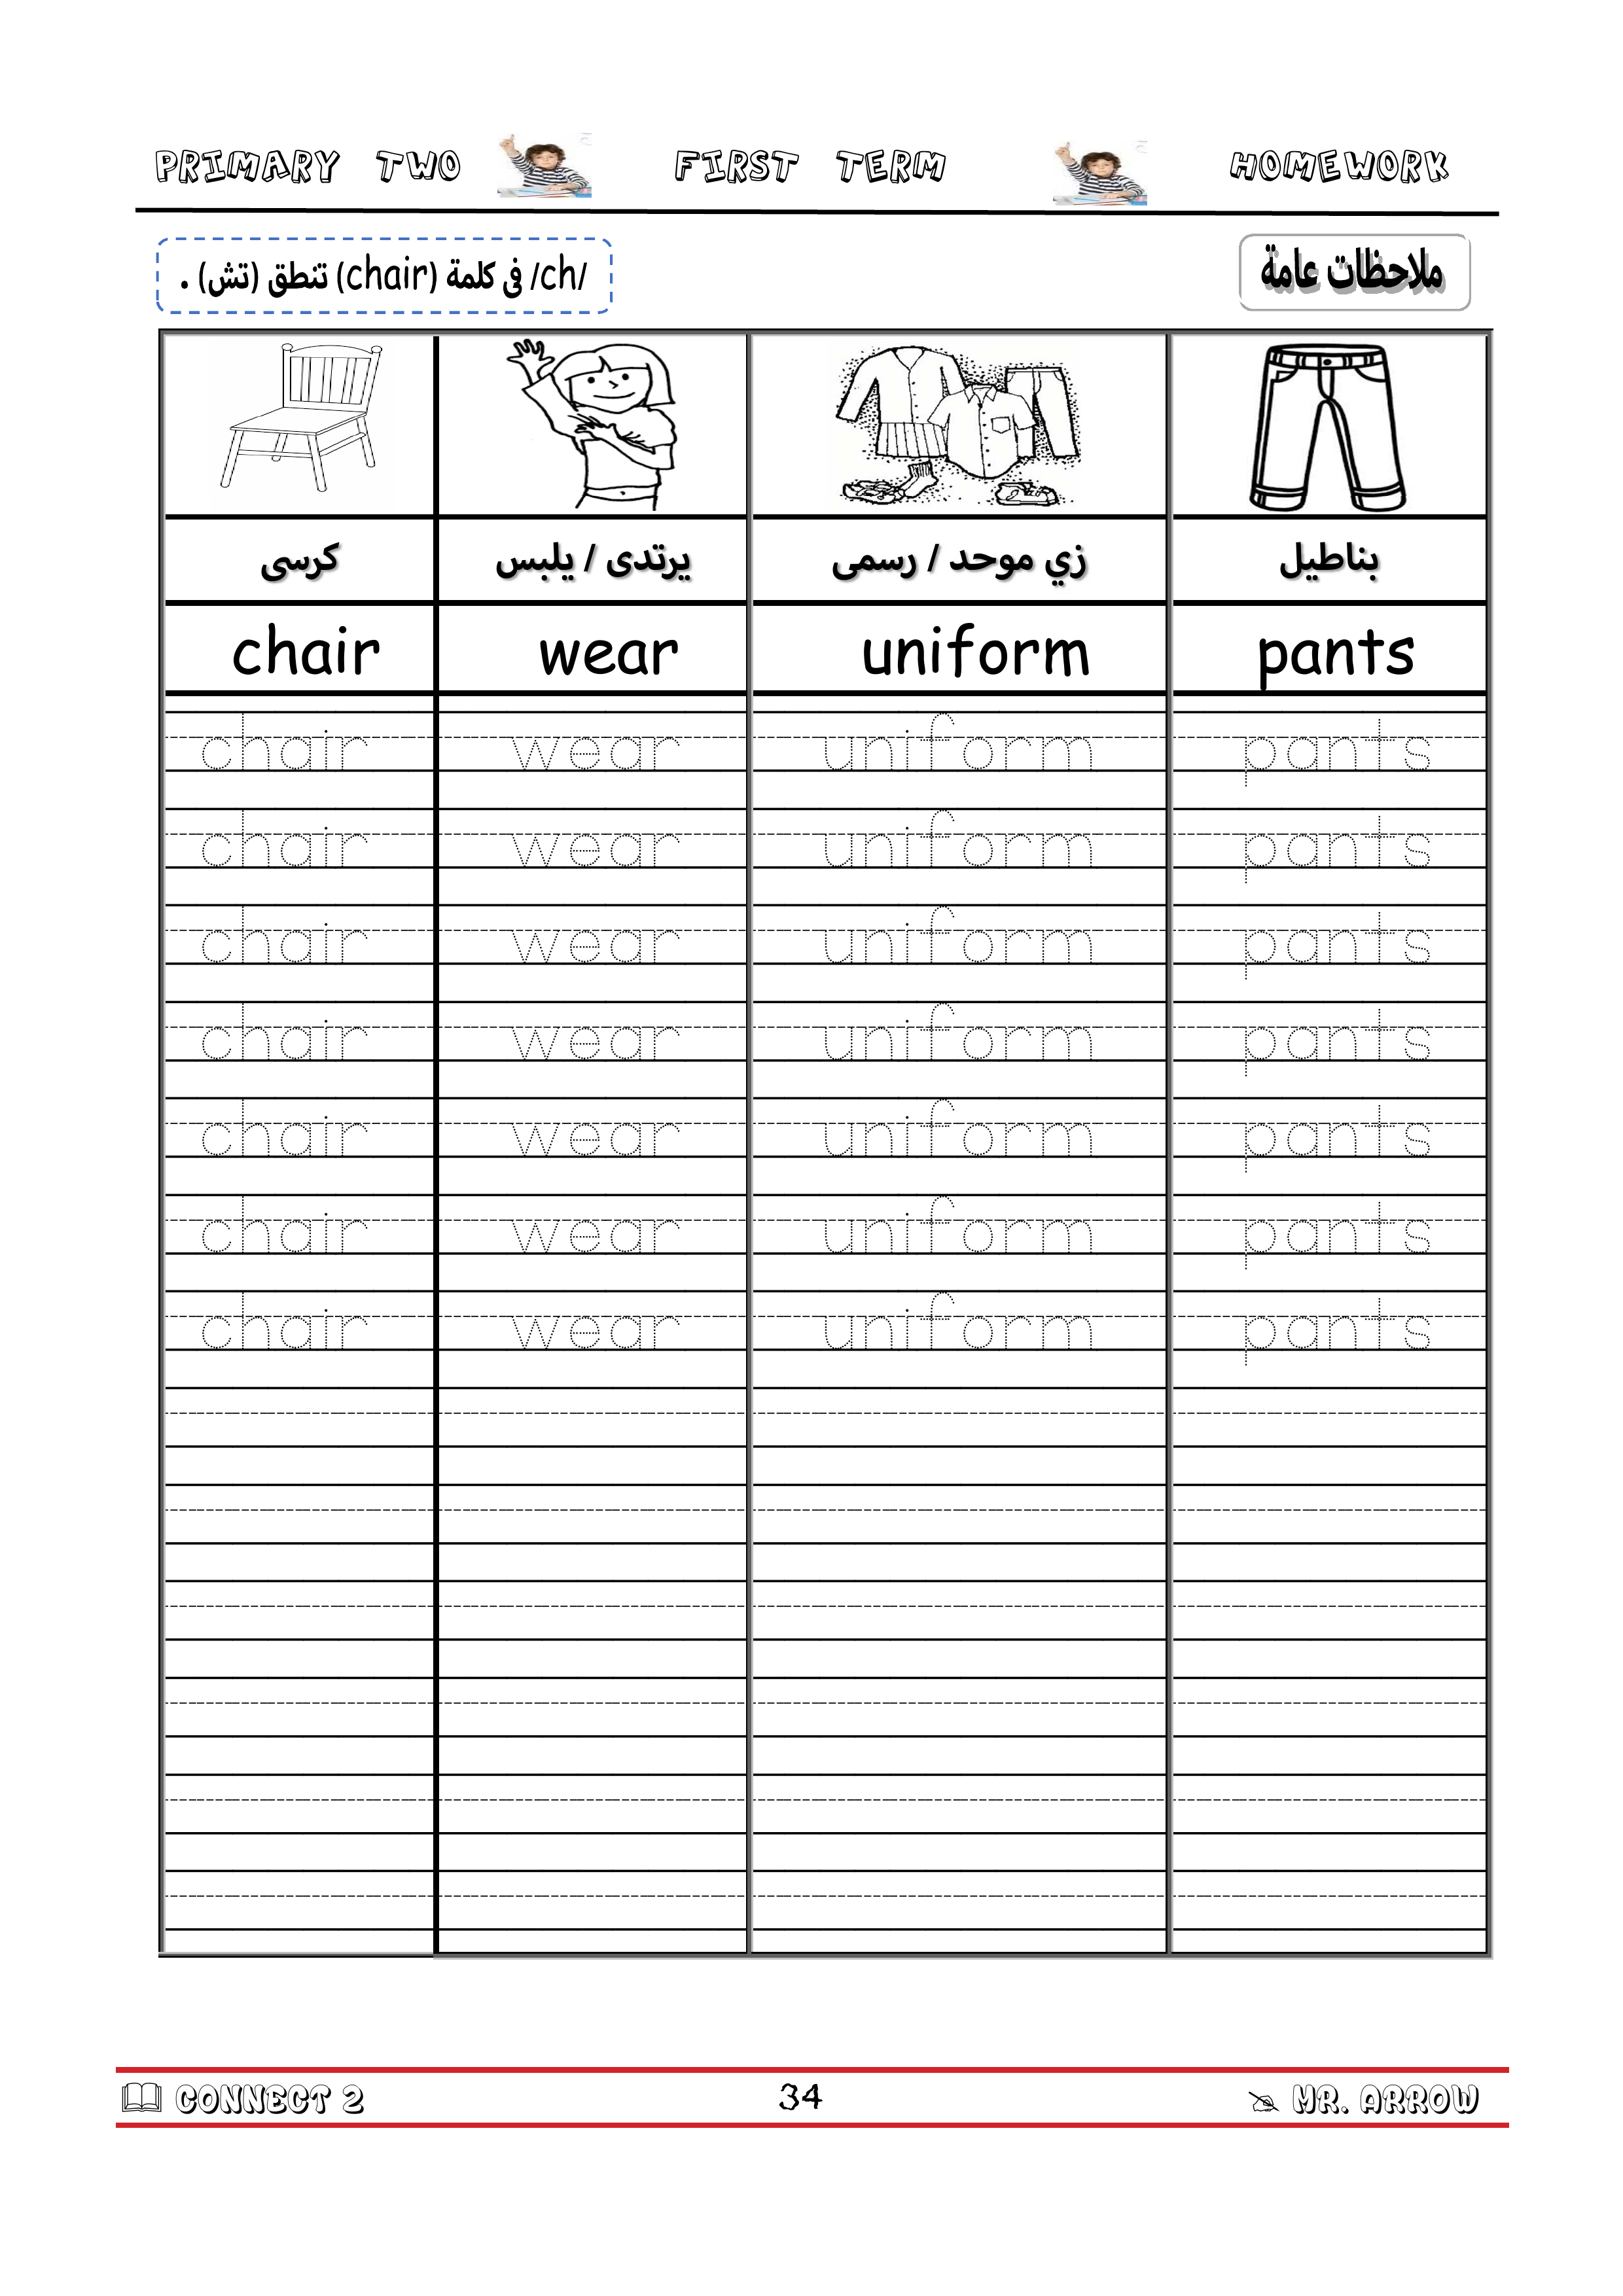 PRIMARY TWO FIRST TERM HOMEWORK
ملاحظات عامة
/ch/ فى كلمة (chair) تنطق (تش) .
كرسى يرتدى / يلبس زي موحد / رسمى بناطيل
chair wear uniform pants
chair wear uniform pants
chair wear uniform pants
chair wear uniform pants
chair wear uniform pants
chair wear uniform pants
chair wear uniform pants
chair wear uniform pants
CONNECT 2 34 MR. ARROW